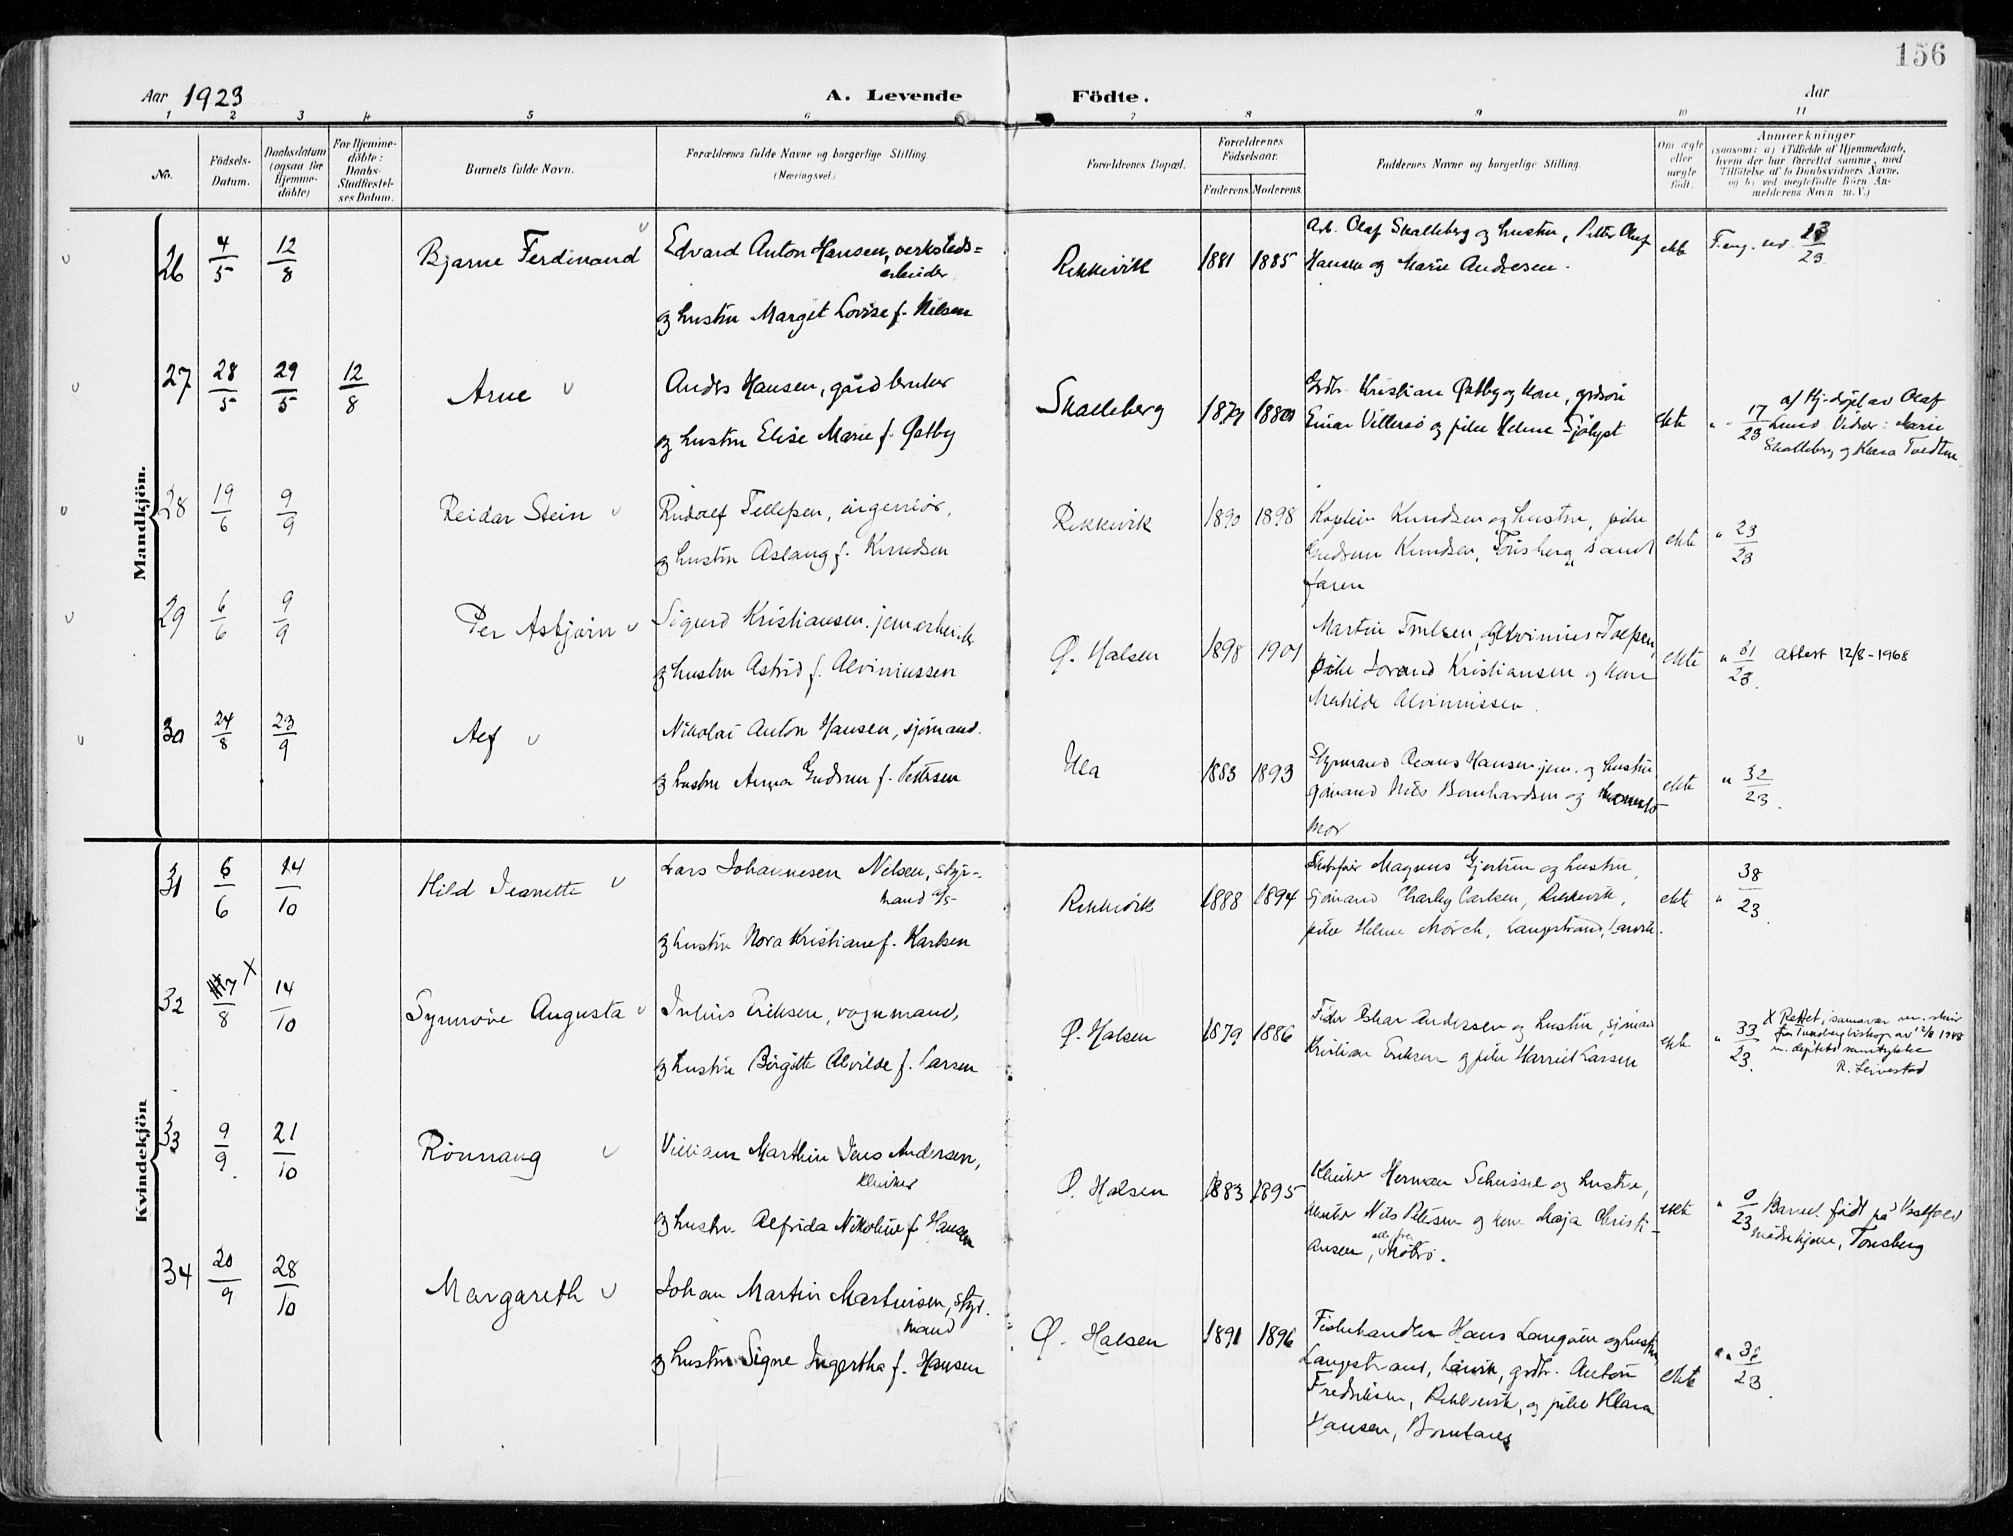 156
Aar 1923
A. Levende Födte.
Aar
1 2 3 4 5 6 7 8 9 10 11
No.
Födsels-Datum.
Daabsdatum (ogsaa for Hjemmedöbte)
For Hjemmedöbte: Daabs-Stadfæstelses Datum.
Barnets fulde Navn.
Forældrenes fulde Navne og borgerlige Stilling (Næringsvei.)
Forældrenes Bopæl.
Forældrenes Födselsaar.
Faderens Moderens.
Faddernes Navne og borgerlige Stilling.
Om ægte eller uægte födt.
Anmærkninger
(saasom: a) i Tilfælde af Hjemmedaab,
hvem der har forrettet samme, med
Tilföielse af to Daabsvidners Navne,
og b) ved uægtefödte Börn An-
melderens Navn m. V.)
Mandkjön.
26 4/5 12/8 Bjarne Ferdinand
Edvard Anton Hansen, verksteds=
arbeider
og hustru Marget Lovise f. Nilsen
Rekkevik 1881 1885
Arb. Olaf Skalleberg og hustru, Petter Olaf
Hansen og Marie Andresen.
ekte
23
27 28/5 29/5 12/8 Arne
Anders Hansen, gårdbruker
og hustru Elise Marie f. Østby
Skalleberg 1879
Grdbr. Kristian Østby og kone, grdsøn
Einar Villersø og pike Helene Sjølyst
ekte
17/23 af Hj.døpt av Olaf
Lund Vidner: Marie
Skalleberg og Klara Tvedten
28 19/6 9/9 Reidar Stein
Rudolf Tellefsen, ingeniør,
og hustru Aslaug f. Knudsen
Rekkevik 1890 1898
Kaptein Knudsen og hustru, pike
Gudrun Knudsen, Tønsberg samt
faren
ekte " 23/23
29 6/6 9/9 Per Asbjørn
Sigurd Kristiansen, jernarbeider
og hustru Astrid f. Alviniussen
Ø. Halsen 1898 1901
Martin Trulsen, Alvinius Tolfsen,
pike Lovand Kristiansen og kone
Mathilde Alviniussen.
ekte " 31/23. attest 12/8-1968
30 24/8 23/9 Alf
Nikolai Anton Hansen, sjømand.
og hustru Anna Gudrun f. Pettersen
Ula 1883 1893
Styrmand Claus Hansen jun. og hustru
sjømand Nils Bernhardsen og
mor
ekte " 32/23.
Kvindekjön
31 6/6 14/10 Hild Jeanette
Lars Johannesen Nilsen, styr=
mand
og hustru Nora Kristiane f. Karlsen
Rekkevik 1888 1894
Magnus Gjertsen og hustru,
sjømand Charley Carlsen, Rekkevik,
pike Helene Mørch, Langestrand, Larvik.
ekte " 38/23.
32 17/8 X 14/10 Synnøve Augusta
Julius Eriksen, vognmand,
og hustru Birgitte Alvilde f. Larsen
Ø. Halsen 1879 1886
Oskar Andersen og hustru, sjømand
Kristian Eriksen og pike Harriet Larsen
ekte " 33/23.
X Rettet, i samsvar m. skriv
fra Tunsberg biskop av 12/8 1948
m. dep.tets samtykke
R. Leivestad
33 9/9. 21/10 Rønnaug
William Marthin Jens Andersen,
klinker
og hustru Alfrida Nikoline f. Hansen
Ø. Halsen 1883 1895
Klinker Herman Schüssel og hustru,
klinker Nils Petersen og kone Maja Christi-
ansen, alle fra Nøtrø.
ekte " 0/23 Barnet født på Vestfold
mødrehjem, Tønsberg
34 20/9 28/10 Margareth
Johan Martin Martinsen, styr.
mand
og hustru Signe Ingertha f. Hansen
Ø. Halsen 1891 1896
Fiskehandler Hans Langøen og hustru,
Langestrand, Larvik, grdbr. Anton
Fredriksen, Rekkevik, og pike Klara
Hansen, Bornkares
ekte " 36/23.